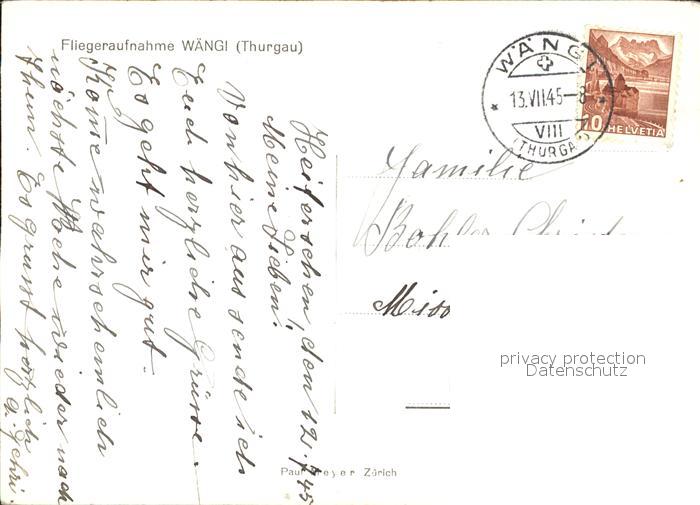 Fliegeraufnahme WÄNGI (Thurgau)
WÄNGI
13.VII.45-8
VIII
(THURGAU)
10 HELVETIA
den 12.7.45
Meine Lieben!
Von hier aus sende ich
Euch herzliche Grüsse.
Es geht mir gut.
Komme wahrscheinlich
nächste Woche wieder nach
Es grüsst herzlich
Familie
Bohler
privacy protection
Datenschutz
Zürich